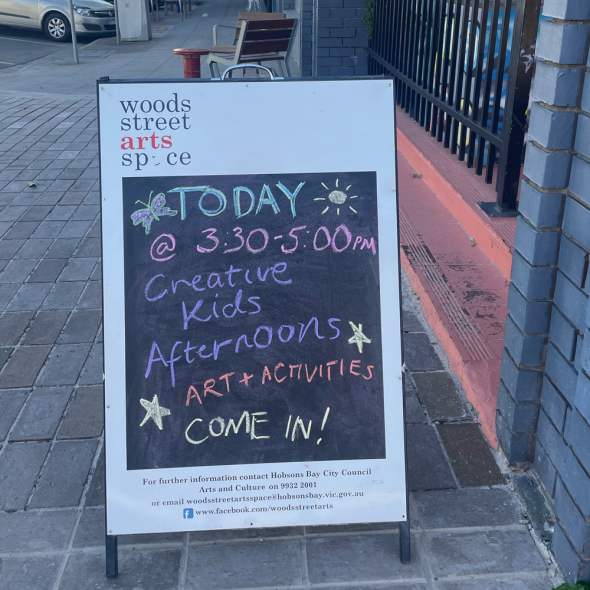 woods
street
arts
sp ce
TODAY
@ 3:30-5:00PM
Creative
Kids
Afternoons
ART + ACTIVITIES
COME IN!
For further information contact Hobsons Bay City Council
Arts and Culture on 9932 2001
or email woodsstreetartsspace@hobsonsbay.vic.gov.au
f www.facebook.com/woodsstreetarts